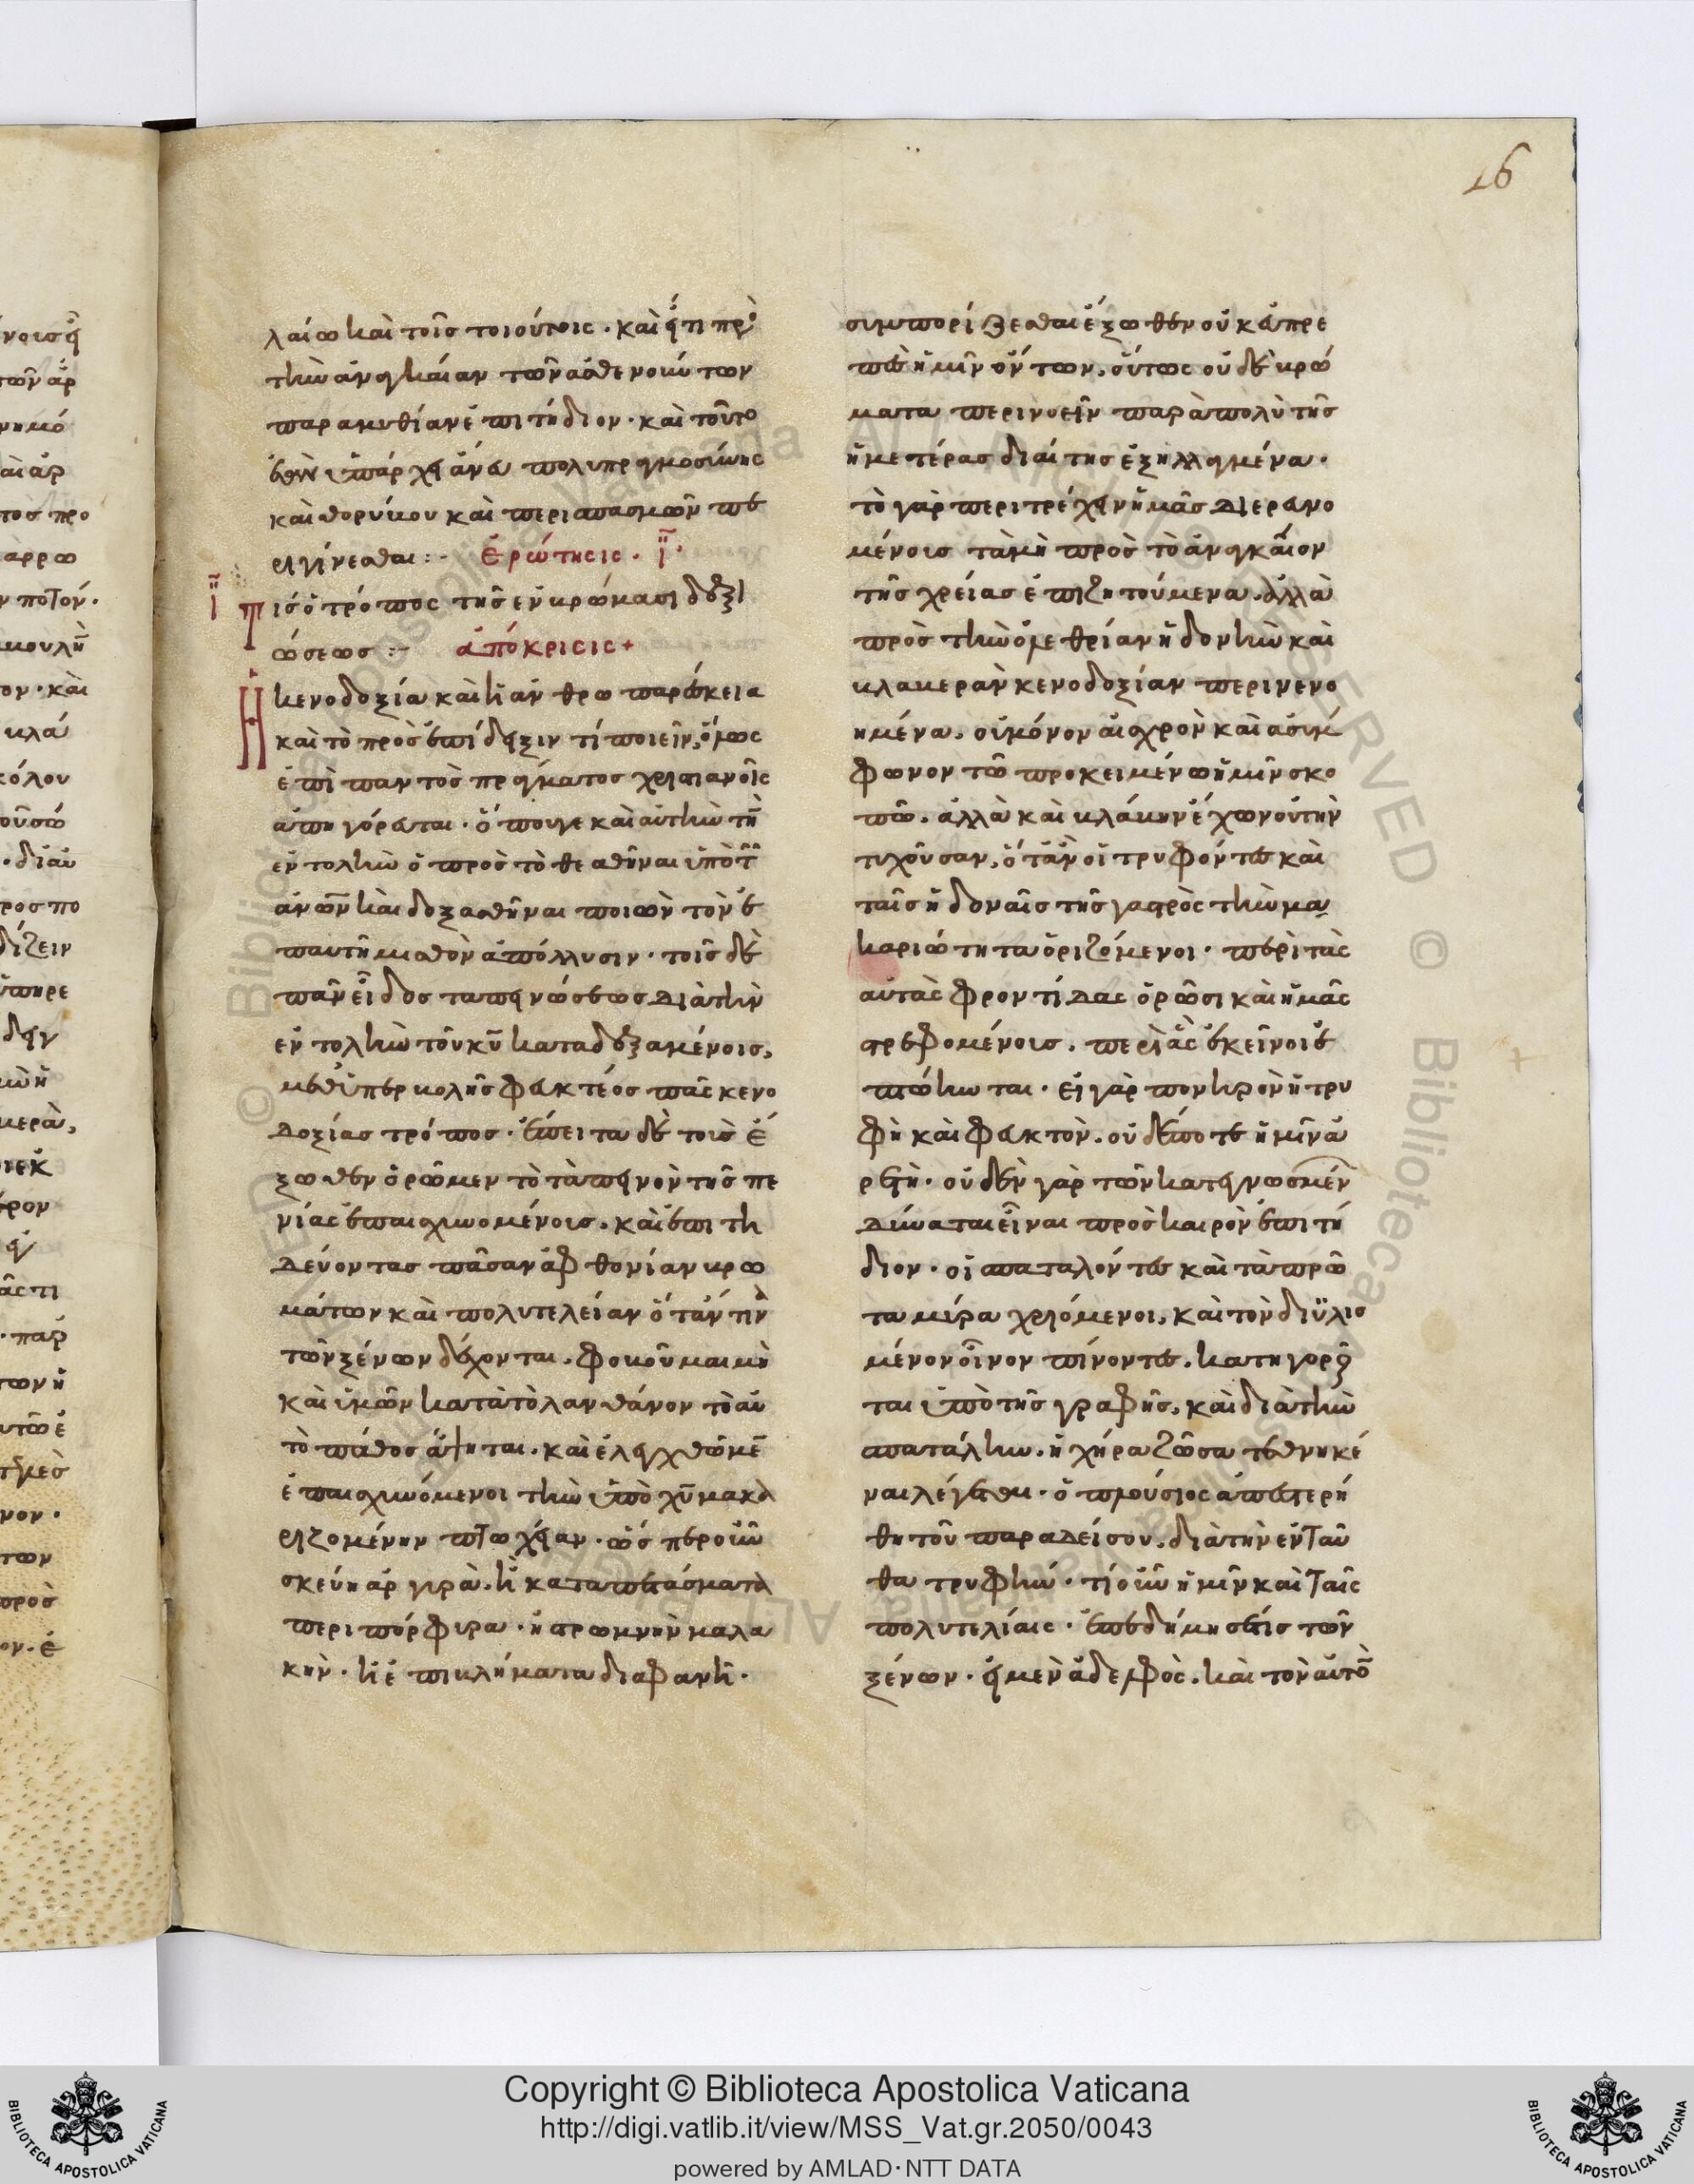 λαίω καὶ τοῖς τοιούτοις · καὶ εἴ τι πρὸ
τὴν ἀναγκαίαν τῶν ἀσθενούντων
παραμυθίαν ἐπιτήδιον · καὶ τοῦτο
ὑπάρχει ἄνευ πολυπραγμοσύνης
καὶ θορύβου καὶ περισπασμῶν πε
ριγίνεσθαι :- ἐρώτησις ·
Τίς ὁ τρόπος τῆς ἐν βρώμασι δεξι
ώσεως :- ἀπόκρισις +
Ἡ κενοδοξία καὶ ἡ ἀνθρωπαρέσκεια
καὶ τὸ πρὸς ἐπίδειξιν τί ποιεῖν, ὅμως
ἐπὶ παντὸς πράγματος χριστιανοῖς
ἀπηγόρευται · ὅπουγε καὶ αὐτὴν τὴν
ἐντολὴν ὁ πρὸς τὸ θεαθῆναι ὑπὸ τῶν
ἀνων καὶ δοξασθῆναι ποιῶν τὸν ἐ
παυτῆ μισθὸν ἀπόλλυσιν · τοῖς δὲ
πᾶν εἶδος ταπεινώσεως διὰ τὴν
ἐντολὴν τοῦ κυ καταδεξαμένοις,
μεθ ὑπερβολῆς φευκτέος πᾶς κενο
δοξίας τρόπος · ἔπειτα δὲ τοὺς ἔ
ξωθεν ὁρῶμεν τὸ ταπεινὸν τῆς πε
νίας ἐπαισχυνομένους · καὶ ἐπιτη
δεύοντας πᾶσαν ἀφθονίαν βρω
μάτων καὶ πολυτελείαν ὅταν τινὰ
τῶν ξένων δέχονται · φοβοῦμαι μὴ
καὶ ἡμῶν κατὰ τὸ λανθάνον τὸ αὐ
τὸ πάθος ἅψηται · καὶ ἐλεγχθῶμεν
ἐπαισχυνόμενοι τὴν ὑπὸ χυ μακα
ριζομένην πτωχείαν · ὥσπερ οὖν
σκεύη ἀργυρᾶ · ἢ καταπετάσματα
περιπόρφυρα · ἢ στρωμνὴν μαλα
κὴν · ἢ ἐπιβλήματα διαφανῆ ·
συμπορίζεσθαι ἔξωθεν οὐκ εὐπρε
πὲς ἡμῖν ὄντων, οὕτως οὐδὲ βρώ
ματα περινοεῖν παρὰ πολὺ τῆς
ἡμετέρας διαίτης ἐξηλλαγμένα ·
τὸ γὰρ περιτρέχειν ἡμᾶς διερευνο
μένους τὰ μὴ πρὸς τὸ ἀναγκαῖον
τῆς χρείας ἐπιζητούμενα, ἀλλὰ
πρὸς τὴν ὀλεθρίαν ἡδονὴν καὶ
βλαβερὰν κενοδοξίαν περινενο
ημένα, οὐ μόνον αἰσχρὸν καὶ ἀσύμ
φωνον τῶ προκειμένω ἡμῖν σκο
πῶ, ἀλλὰ καὶ βλάβην ἔχων οὐ τὴν
τυχοῦσαν, ὅταν οἱ τρυφόντες καὶ
ταῖς ἡδοναῖς τῆς γαστρὸς τὴν μα
καριότητα ὁριζόμενοι · περὶ τὰς
αὐτὰς φροντίδας ὁρῶσι καὶ ἡμᾶς
στρεφομένους, περὶ ἃς ἐκεῖνοι ἐ
πτόηνται · εἰ γὰρ πονηρὸν ἡ τρυ
φὴ καὶ φευκτὸν, οὐδέποτε ἡμῖν αἱ
ρετὴ · οὐδὲν γὰρ τῶν κατεγνωσμέν
δύναται εἶναι πρὸς καιρὸν ἐπιτή
διον · οἱ σπαταλόντες καὶ τὰ πρῶ
τα μύρα χριόμενοι, καὶ τὸν διϋλισ
μένον οἶνον πίνοντες, κατηγοροῦ
ται ὑπὸ τῆς γραφῆς, καὶ διὰ τὴν
σπατάλην, ἡ χήρα ζῶσα τεθνηκέ
ναι λέγεται · ὁ πλούσιος ἀπεστερή
θη τοῦ παραδείσου, διὰ τὴν ἐνταῦ
θα τρυφὴν · τί οὖν ἡμῖν καὶ ταῖς
πολυτελίαις · ἐπεδήμησέτις τῶν
ξένων · εἰ μὲν ἀδελφὸς, καὶ τὸν αὐτὸν
16
Copyright © Biblioteca Apostolica Vaticana
http://digi.vatlib.it/view/MSS_Vat.gr.2050/0043
powered by AMLAD·NTT DATA
BIBLIOTECA APOSTOLICA VATICANA
BIBLIOTECA APOSTOLICA VATICANA